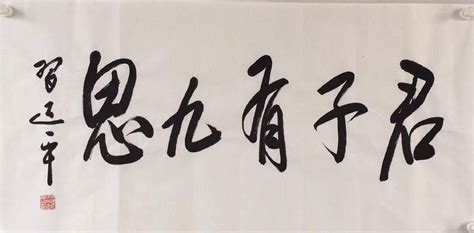 君子有九思
習近平